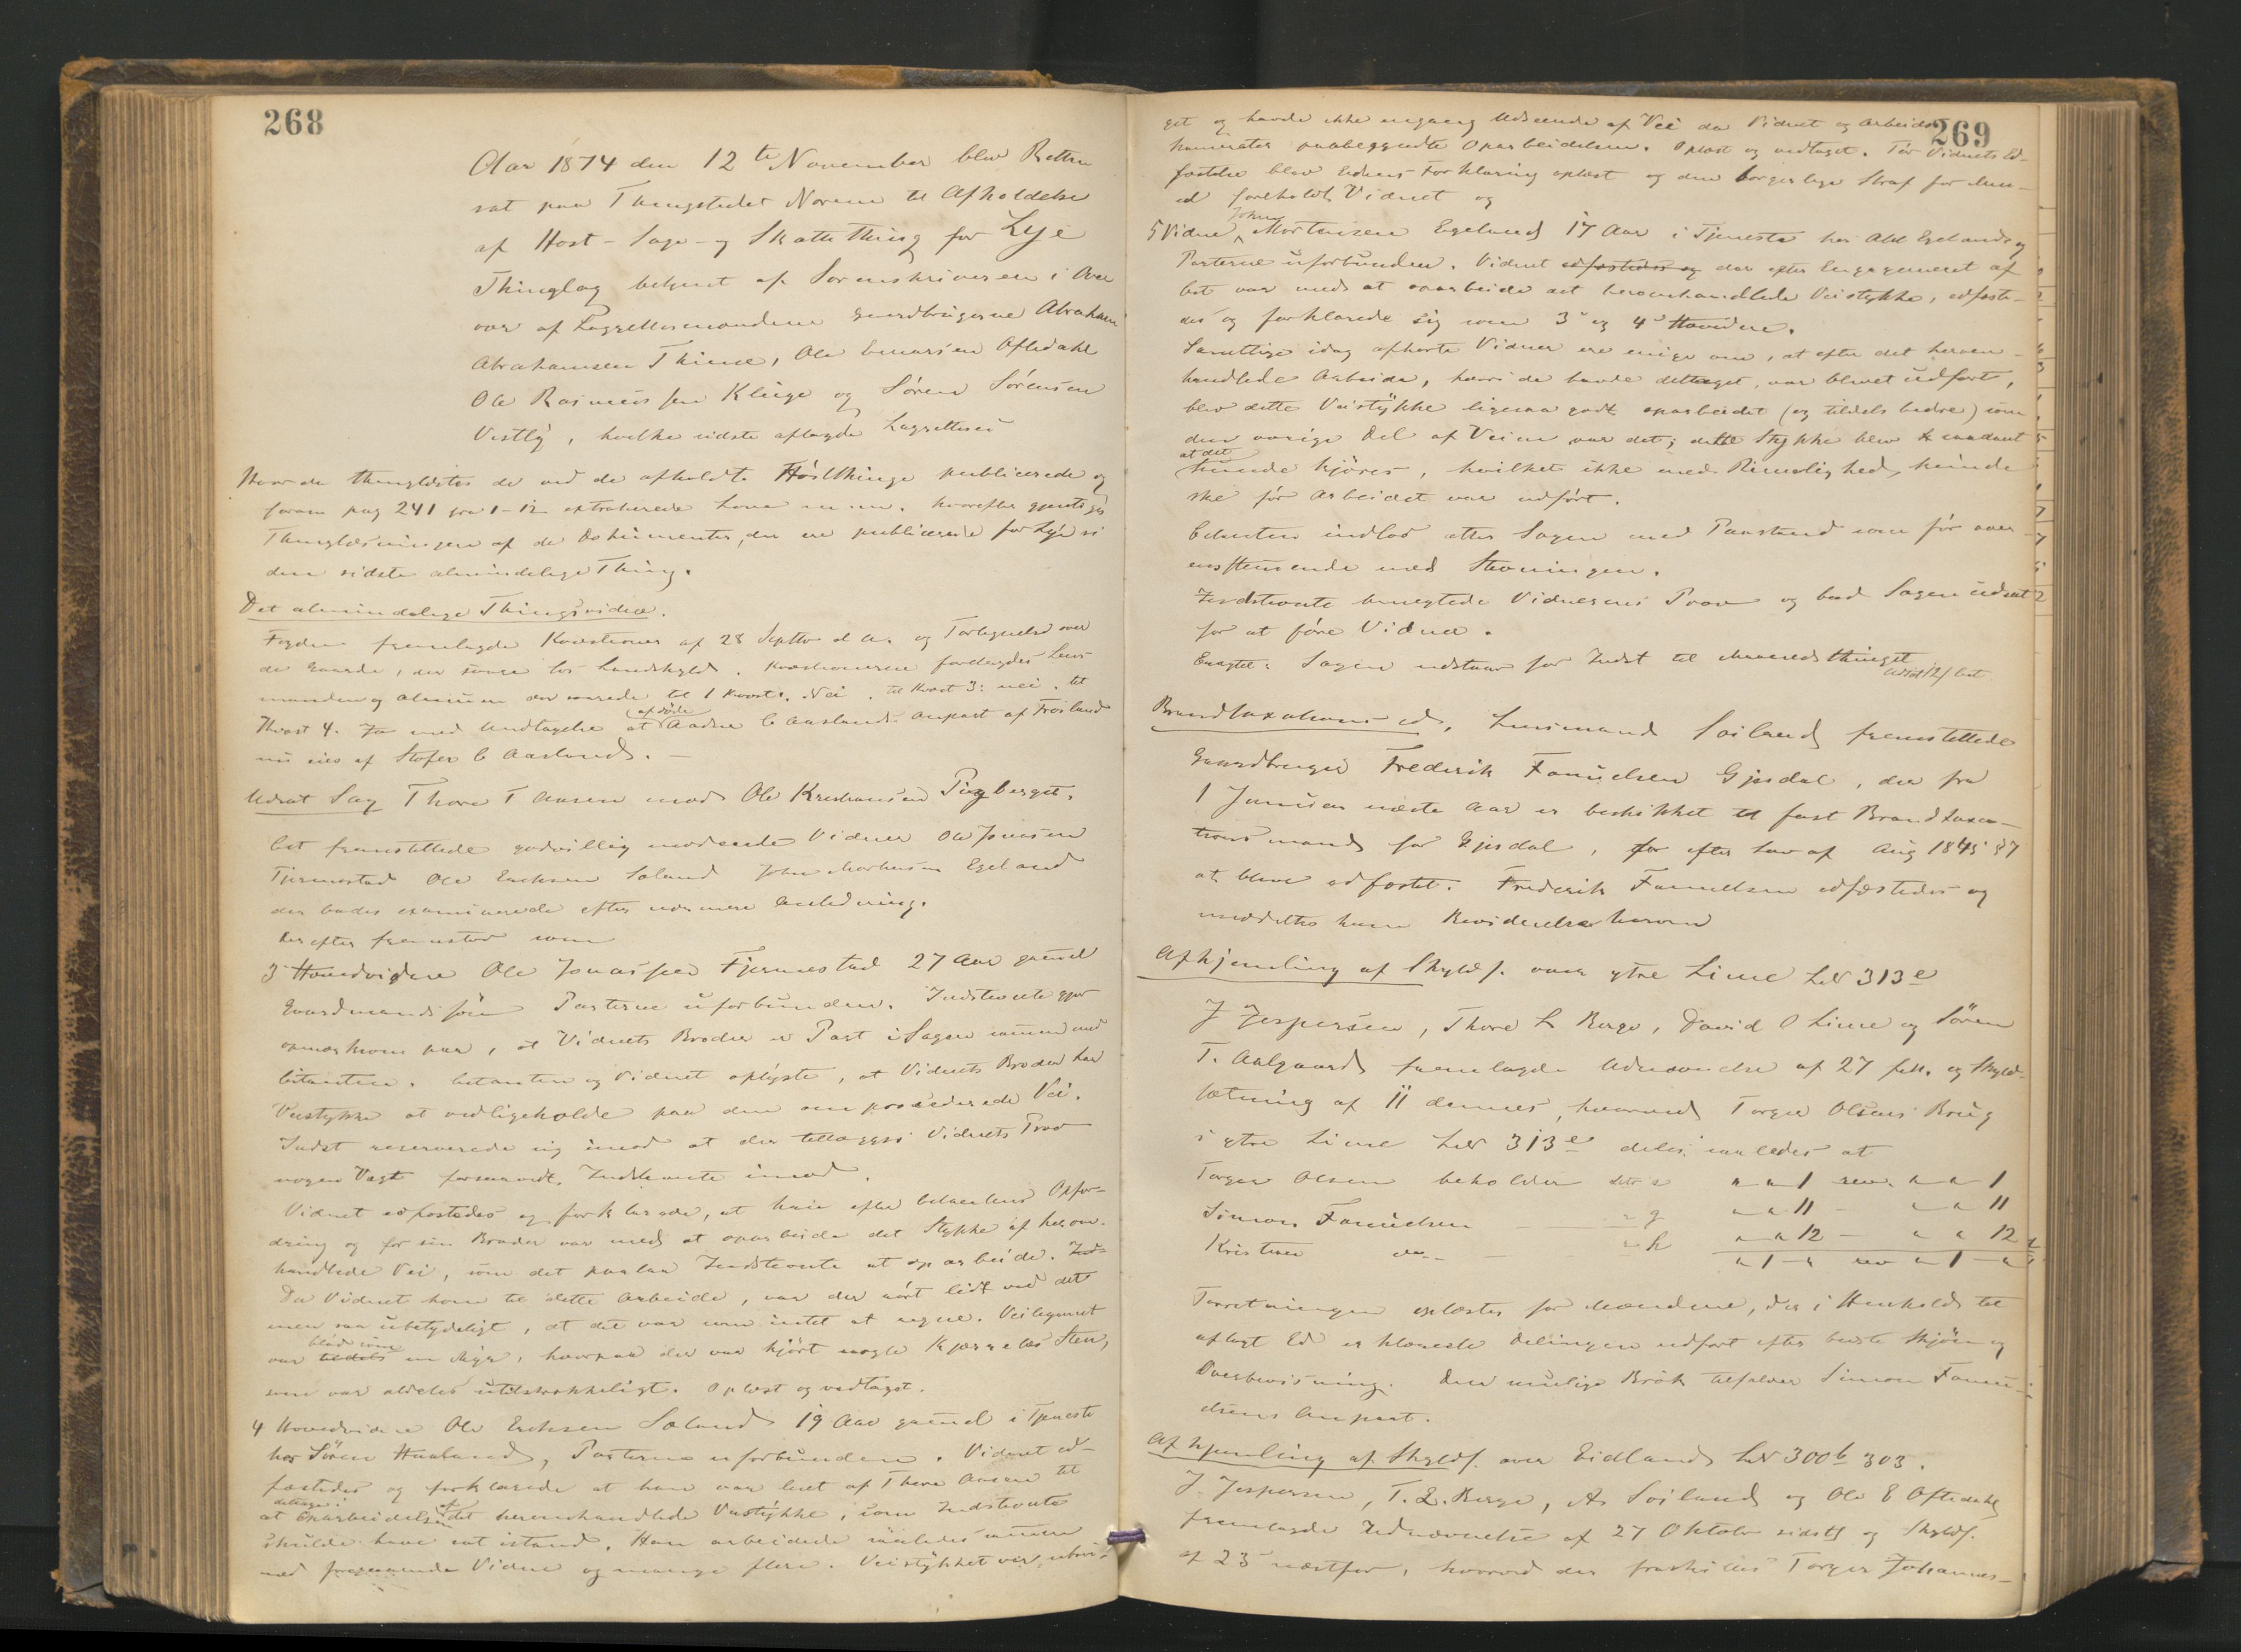 268
Aar 1874 den 12te November blev Retten
sat paa Thingstedet Norem til Afholdelse
af Høst- Sage- og Skatte Thing for Lye
Thinglag betjent af Sorenskriveren i Over
vær af Laggrettesmændene Gaardbrugerne Abraham
Abrahamsen Thime, Ole Aftedahl
Ole Rasmussen Kluge og Søren Sørensen
Vestly, hvilke sidste aflagde Laggrettesed
thinglæstes de ved de afholdte Høstthinge publicerede og
foran pag 241 fra 1-12 extraherede Love m. m. hvorefter gjentoges
Thinglæsningen af de Dokumenter, der ere publicerede for Lye si
den sidste almindelige Thing.
Det almindelige Thingsvidne.
Fogden fremlagde Kvæstioner af 28 Septbr d. A. og Fortegnelse over
de Gaarde, der svare los Landskyld. Kvæstionerne forelagdes Lens-
manden og Almuen der svarede til 1 Kvæst. Nei. til Kvæst 3: nei. til
Kvæst 4. Ja med Undtagelse at afdøde Aadne C Aaslands Anpart af Frøiland
nu eies af Stofer C Aasland. —
Udsat Sag Thore T Aasen mod Ole Kristiansen Pigberget.
Cit fremstillede godvillig mødende Vidner Ole Jonasen
Fjermestad Ole Erichsen Søland John Mortensen Egeland
der bades examinerede efter nærmere Anledning.
Derefter fremstod som
3 Hovedvidne Ole Jonassen Fjermestad 27 Aar gammel
Gaardmandssøn Parterne uforbunden. Indstevnte gjør
opmærksom paa, at Vidnets Broder er Part i Sagen sammen med
Citanten. Citanten og Vidnet oplyste, at Vidnets Broder har
Veistykke at vedligeholde paa den omprocederede Vei.
Indst reserverede sig imod at der tillægges Vidnets Prov
nogen Vægt forsaavidt. Indstevnte imod.
Vidnet edfæstedes og forklarede, at han efter Citantens Opfor-
dring og for sin Broder var med at oparbeide det Stykke af herom-
handlede Vei, som det paalaa Indstevnte at oparbeide.
Da Vidnet kom til dette Arbeide, var der gjort lidt ved det
men saa ubetydeligt, at det var som intet at regne. Veilegemet
var tildels blød som en Myr, hvorpaa der var kjørt nogle Kjærrelæs Sten,
som var aldeles utilstrækkeligt. Oplæst og vedtaget.
4 Hovedvidne Ole Erichsen Søland 19 Aar gammel i Tjeneste
hos Søren Haaland, Parterne uforbunden. Vidnet ed-
fæstedes og forklarede at han var leiet af Thore Aasen til
at deltage i Oparbeidelsen af det heromhandlede Veistykke, som Indstevnte
skulde have sat istand. Han arbeidede saaledes sammen
med foregaaende Vidne og mange flere. Veistykket var
269
get og havde ikke engang Udseende af Vei da Vidnet og Arbeids-
kamerater paabegyndte Oparbeidelsen. Oplæst og vedtaget. Før Vidnets Ed-
fæstelse blev Edens Forklaring oplæst og den borgerlige Straf for Men-
ed foreholdt Vidnet og
5 Vidne John Mortensen Egeland 17 Aar i Tjeneste hos Abel Egeland og
Parterne uforbunden. Vidnet edfæstedes og der efter Engagement af
Cit var med at oparbeide det heromhandlede Veistykke, edfæste-
des og forklarede sig som 3 og 4 Hovidne.
Samtlige idag afhørte Vidner ere enige om, at efter det herom-
handlede Arbeide, hvori de havde deltaget, var blevet udført,
blev dette Veistykke ligesaa godt oparbeidet (og tildels bedre) som
den øvrige Del af Veien var det; dette Stykke blev saadant
at det kunde kjøres, hvilket ikke med Rimelighed kunde
ske før Arbeidet var udført.
Citanten indlod atter Sagen med Paastand som før over
ensstemmende med Stevningen.
Indstevnte benegtede Vidnernes Prov og bad Sagen udsat
for at føre Vidner.
Eragtet: Sagen udstaar for Indst til Maanedsthinget
Brandtaxations ed. Lensmand Soiland fremstillede
Gaardbruger Frederik Samuelsen Gjesdal, der fra
1 Januar næste Aar er beskikket til fast Brandtaxa-
tionsmand for Gjesdal, for efter Lov af Aug 1845 § 7
at blive edfæstet. Frederik Samuelsen edfæstedes og
meddeltes ham Bevidnelse herom
Afhjemling af Skyldf. over ytre Lime LNr 313e
J Jespersen, Thore L Berge, David O Lime og Søren
T. Aalgaard fremlagde Udnævnelse af 27 f. M. og Skyld-
sætning af 11 dennes, hvorved Torger Olsens Brug
i ytre Lime LNr 313e deles saaledes at
Torger Olsen beholder 1 rev. 1
Simon Samuelsen — g 11 — 11
Kristian — h 12 — 12
1 — rev 1 —
Forretningen oplæstes for Mændene, der i Henhold til
aflagt Ed erklærede Delingen udført efter bedste Skjøn og
Overbevisning. Den mulige Brøk tilfalder Simon Samu-
elsens Anpart.
Afhjemling af Skyldf. over Eidland LNr 300b 303.
J Jespersen, T. L. Berge, A. Soiland og Ole E Oftedahl
fremlagde Udnævnelse af 27 Oktober sidstl og Skyldf.
af 23 næstfør, hvorved der fraskilles Torger Johannes-